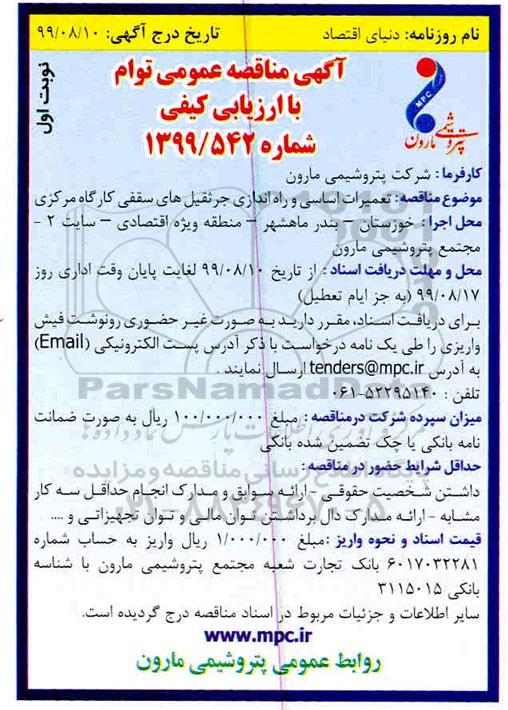 نام روزنامه: دنیای اقتصاد
تاریخ درج آگهی: ۹۹/۰۸/۱۰
نوبت اول
آگهی مناقصه عمومی توام
با ارزیابی کیفی
شماره ۱۳۹۹/۵۴۲
MPC
پتروشیمی مارون
کارفرما: شرکت پتروشیمی مارون
موضوع مناقصه: تعمیرات اساسی و راه اندازی جرثقیل های سقفی کارگاه مرکزی
محل اجرا: خوزستان – بندر ماهشهر – منطقه ویژه اقتصادی – سایت ۲ -
مجتمع پتروشیمی مارون
محل و مهلت دریافت اسناد: از تاریخ ۹۹/۰۸/۱۰ لغایت پایان وقت اداری روز
۹۹/۰۸/۱۷ (به جز ایام تعطیل)
برای دریافت اسناد، مقرر دارید به صورت غیر حضوری رونوشت فیش
واریزی را طی یک نامه درخواست با ذکر آدرس پست الکترونیکی (Email)
به آدرس tenders@mpc.ir ارسال نمایند.
تلفن: ۵۲۲۹۵۱۲۰-۰۶۱
میزان سپرده شرکت درمناقصه: مبلغ ۱۰۰/۰۰۰/۰۰۰ ریال به صورت ضمانت
نامه بانکی یا چک تضمین شده بانکی
حداقل شرایط حضور در مناقصه:
داشتن شخصیت حقوقی - ارائه سوابق و مدارک انجام حداقل سه کار
مشابه - ارائه مدارک دال برداشتن توان مالی و توان تجهیزاتی و ....
قیمت اسناد و نحوه واریز: مبلغ ۱/۰۰۰/۰۰۰ ریال واریز به حساب شماره
۶۰۱۷۰۳۲۲۸۱ بانک تجارت شعبه مجتمع پتروشیمی مارون با شناسه
بانکی ۳۱۱۵۰۱۵
سایر اطلاعات و جزئیات مربوط در اسناد مناقصه درج گردیده است.
www.mpc.ir
روابط عمومی پتروشیمی مارون
ParsNamadData